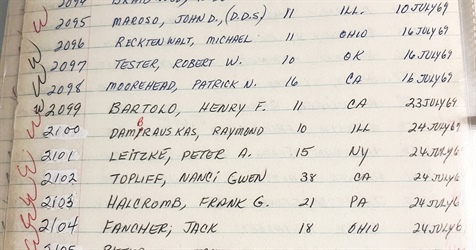 2094
2095 MAROSO, JOHN D., (D.D.S) 11 ILL. 10 JULY 69
2096 RECKTENWALT, MICHAEL 11 OHIO 16 JULY 69
2097 TESTER, ROBERT W. 10 OK 16 JULY 69
2098 MOOREHEAD, PATRICK N. 16 CA 16 JULY 69
W 2099 BARTOLO, HENRY F. 11 CA 23 JULY 69
W 2100 DAMBRAUSKAS, RAYMOND 10 ILL 24 JULY 69
W 2101 LEITZKE, PETER A. 15 NY 24 JULY 6
W 2102 TOPLIFF, NANCI GWEN 38 CA 24 JULY 6
W 2103 HALCROMB, FRANK G. 21 PA 24 JULY 6
W 2104 FANCHER, JACK 18 OHIO 24 JULY 6